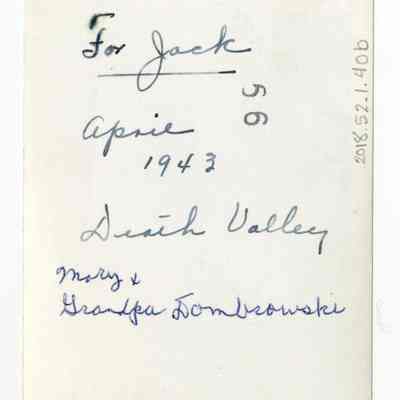 For Jack
56
April
1943
Death Valley
Mary &
Grandpa Dombrowski
2018.52.1.40b